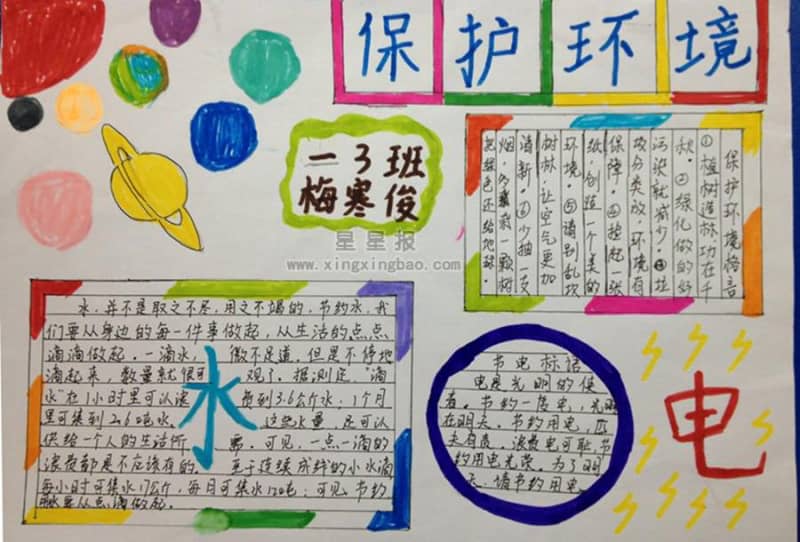 保护环境
一3班
梅寒俊
星星报
www.xingxingbao.com
保护环境格言
①植树造林功在千
秋.②绿化做的好
污染就减少.③垃
圾分类放.环境有
保障.④捡起一张
纸.创造一个美的
环境.⑤请别乱砍
树林.让空气更加
清新.⑥少抽一支
烟.多栽一颗树
把绿色还给地球.
水,并不是取之不尽,用之不竭的,节约水,我
们要从身边的每一件事做起,从生活的点点
滴滴做起.一滴水,微不足道,但是不停地
滴起来,数量就很可观了.据测定,"滴
水"在1小时里可以浪费到3.6公斤水.1个月
里可集到2.6吨水.这些水量,足可以
供给一个人的生活所需.可见,一点一滴的
浪费都是不应该有的.至于连续成线的小水滴
每小时可集水17公斤,每月可集水12吨.可见,节约
用水要从点滴做起.
水
节电标语
电是光明的使
者.节约一度电,光明
在明天.节约用电,匹
夫有责.浪费电可耻,节
约用电光荣.为了明
天,请节约用电.
电